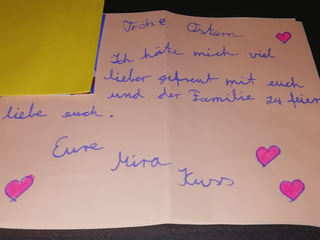 Frohe Ostern
Ich hätte mich viel
lieber gefreut mit euch
und der Familie zu feiern
liebe euch.
Eure
Mira
Kuss